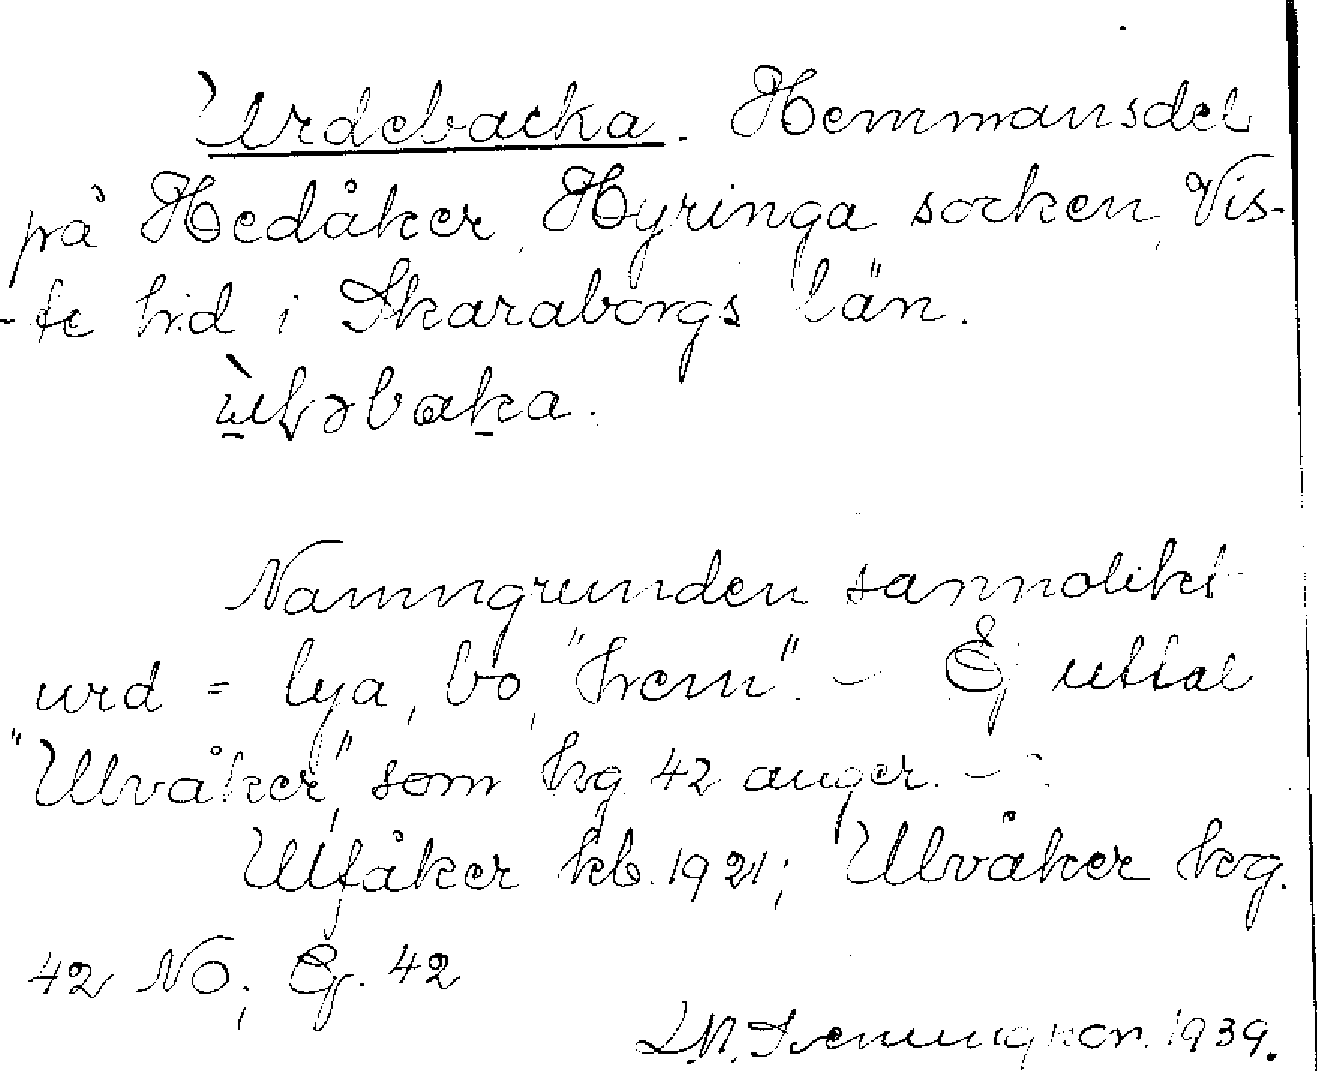 Urdebacka. Hemmansdel
på Hedåker, Hyringa socken, Vis-
-te hd i Skaraborgs län.
Namngrunden sannolikt
urd = lya, bo, "hem". – Ej uttal
"Ulvåker", som kg 42 anger. –
Ulfåker kb. 1921; Ulvåker kg.
42 NO; Ej. 42
1939.